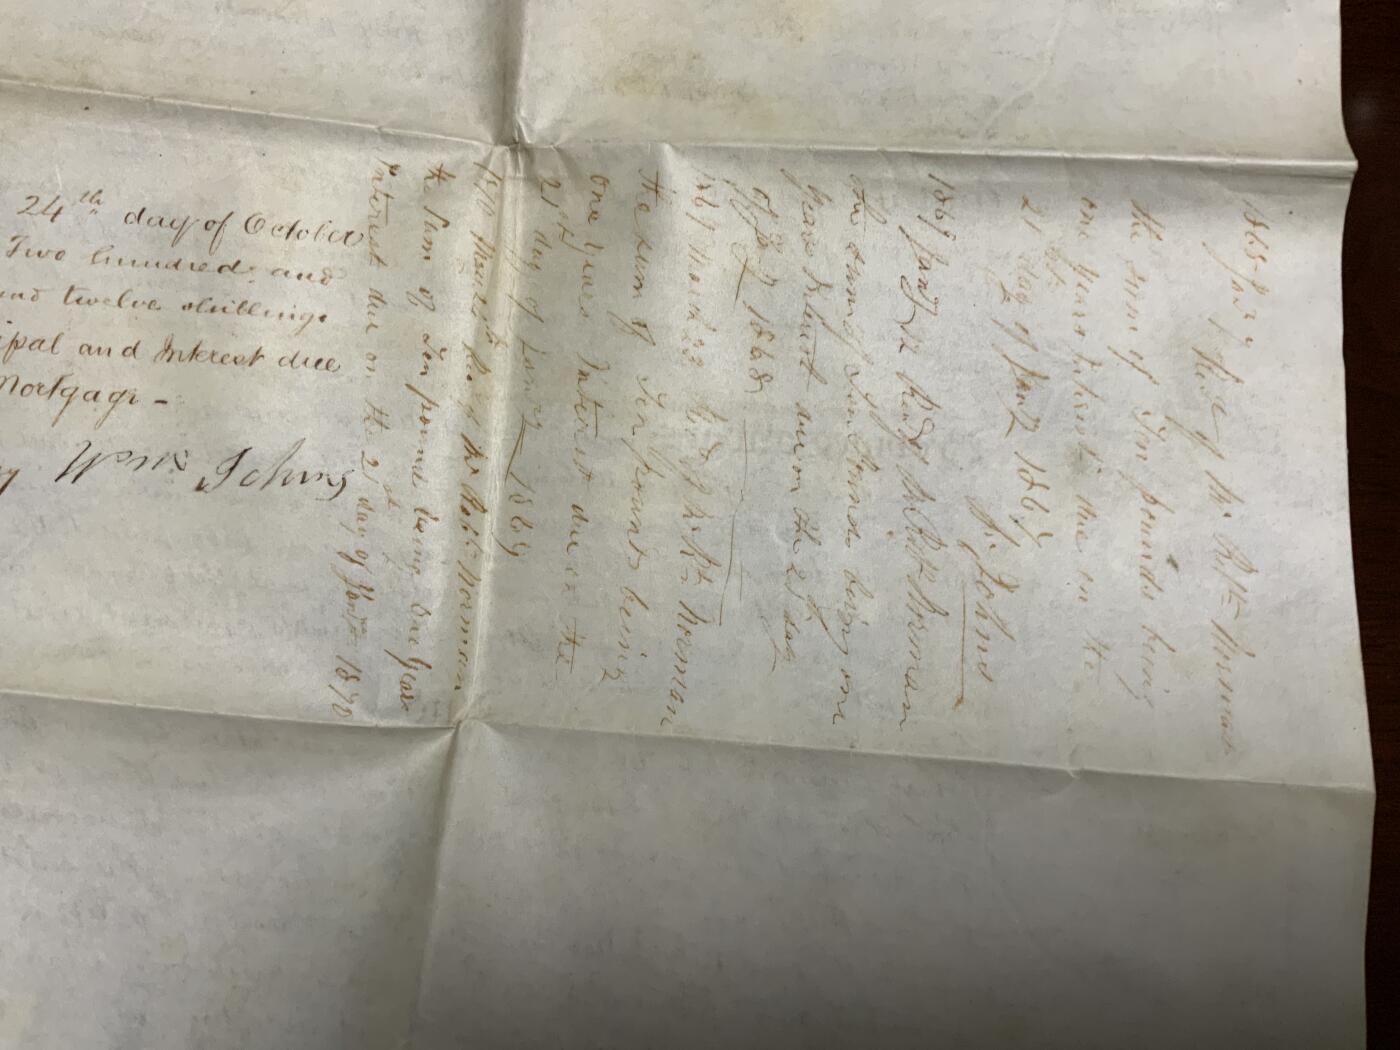 24th day of October
Two hundred and
and twelve shillings
ipal and Interest due
Mortgage -
Wm Johns
1865
Recd of Mr Robt Norman
the sum of Ten pounds being
one years Interest due on the
21 day of Jany 186
Wm Johns
186 Jany 12 Recd of Mr Robt Norman
the sum of Ten Pounds being one
years Interest due on the 21 day
of Jany 1868
1869 March 23 Recd of Mr Robt Norman
the sum of Ten pounds being
one years Interest due on the
21st day of Jany 1869
1870 March Recd of Mr Robt Norman
the Sum of Ten pounds being One years
Interest due on the 21st day of Jany 1870